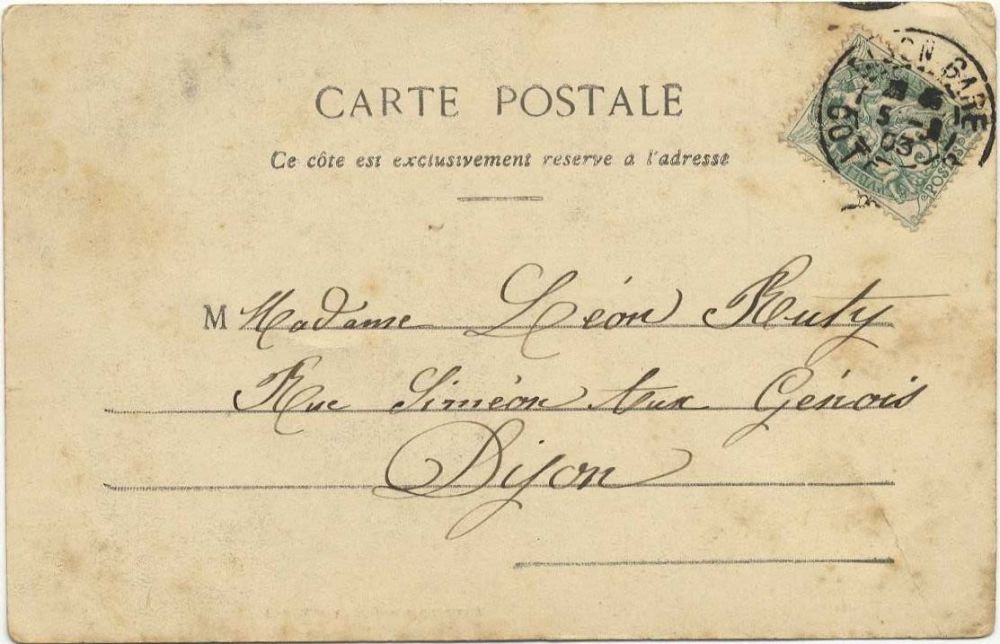 CARTE POSTALE
Ce côte est exclusivement reserve a l'adresse
M Madame Léon Ruty
Rue Siméon Aux Génois
Dijon
GARE
5
03
POSTE